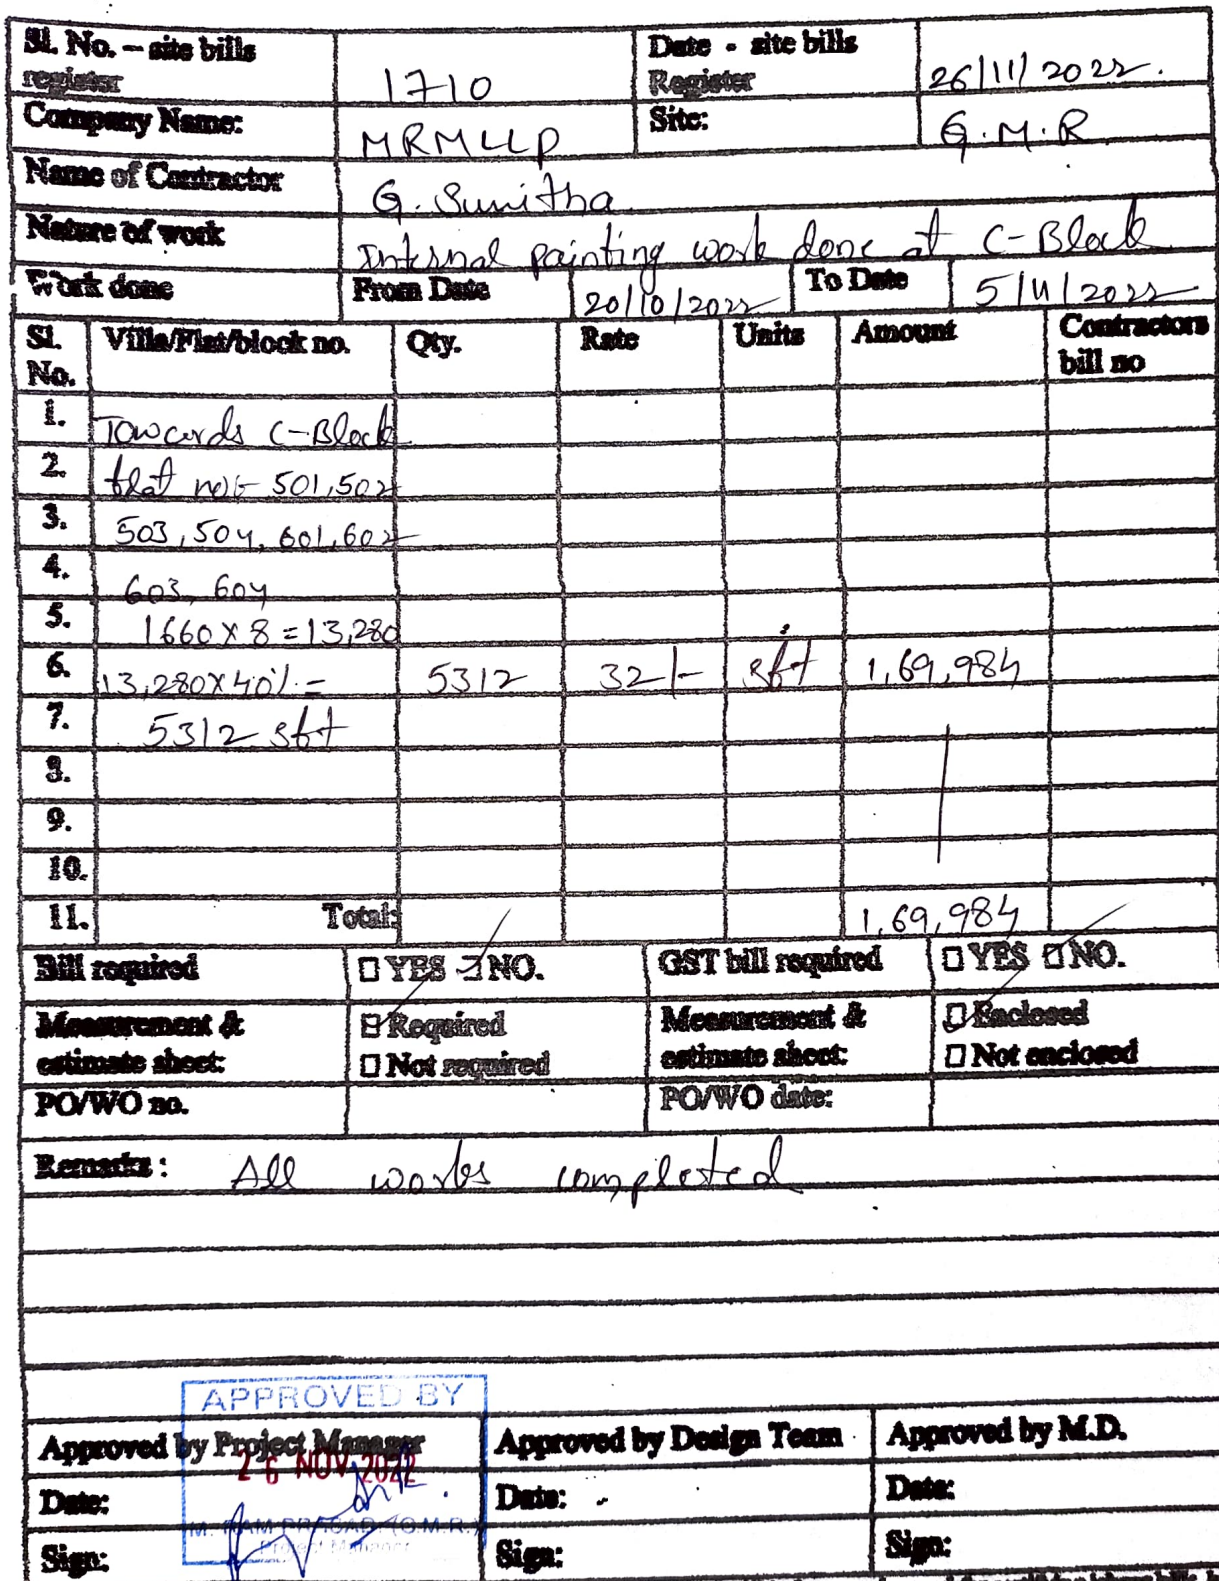 Sl. No. – site bills register 1710 Date - site bills Register 26/11/2022.
Company Name: MRMLLP Site: G.M.R
Name of Contractor G. Sunitha
Nature of work Internal painting work done at C-Block
Work done From Date 20/10/2022 To Date 5/11/2022
Sl. No. Villa/Flat/block no. Qty. Rate Units Amount Contractors bill no
1. Towards C-Block
2. flat no:- 501,502
3. 503, 504, 601, 602
4. 603, 604
5. 1660 X 8 = 13,280
6. 13,280X40%.= 5312 32/- sft 1,69,984
7. 5312 sft
8.
9.
10.
11. Total: 1,69,984
Bill required YES NO. GST bill required YES NO.
Measurement & estimate sheet: Required Not required Measurement & estimate sheet: Enclosed Not enclosed
PO/WO no. PO/WO date:
Remarks: All works completed
APPROVED BY
Approved by Project Manager Approved by Design Team Approved by M.D.
26 NOV 2022
Date: Date: Date:
M. RAM PRASAD (G.M.R.)
Project Manager
Sign: Sign: Sign: